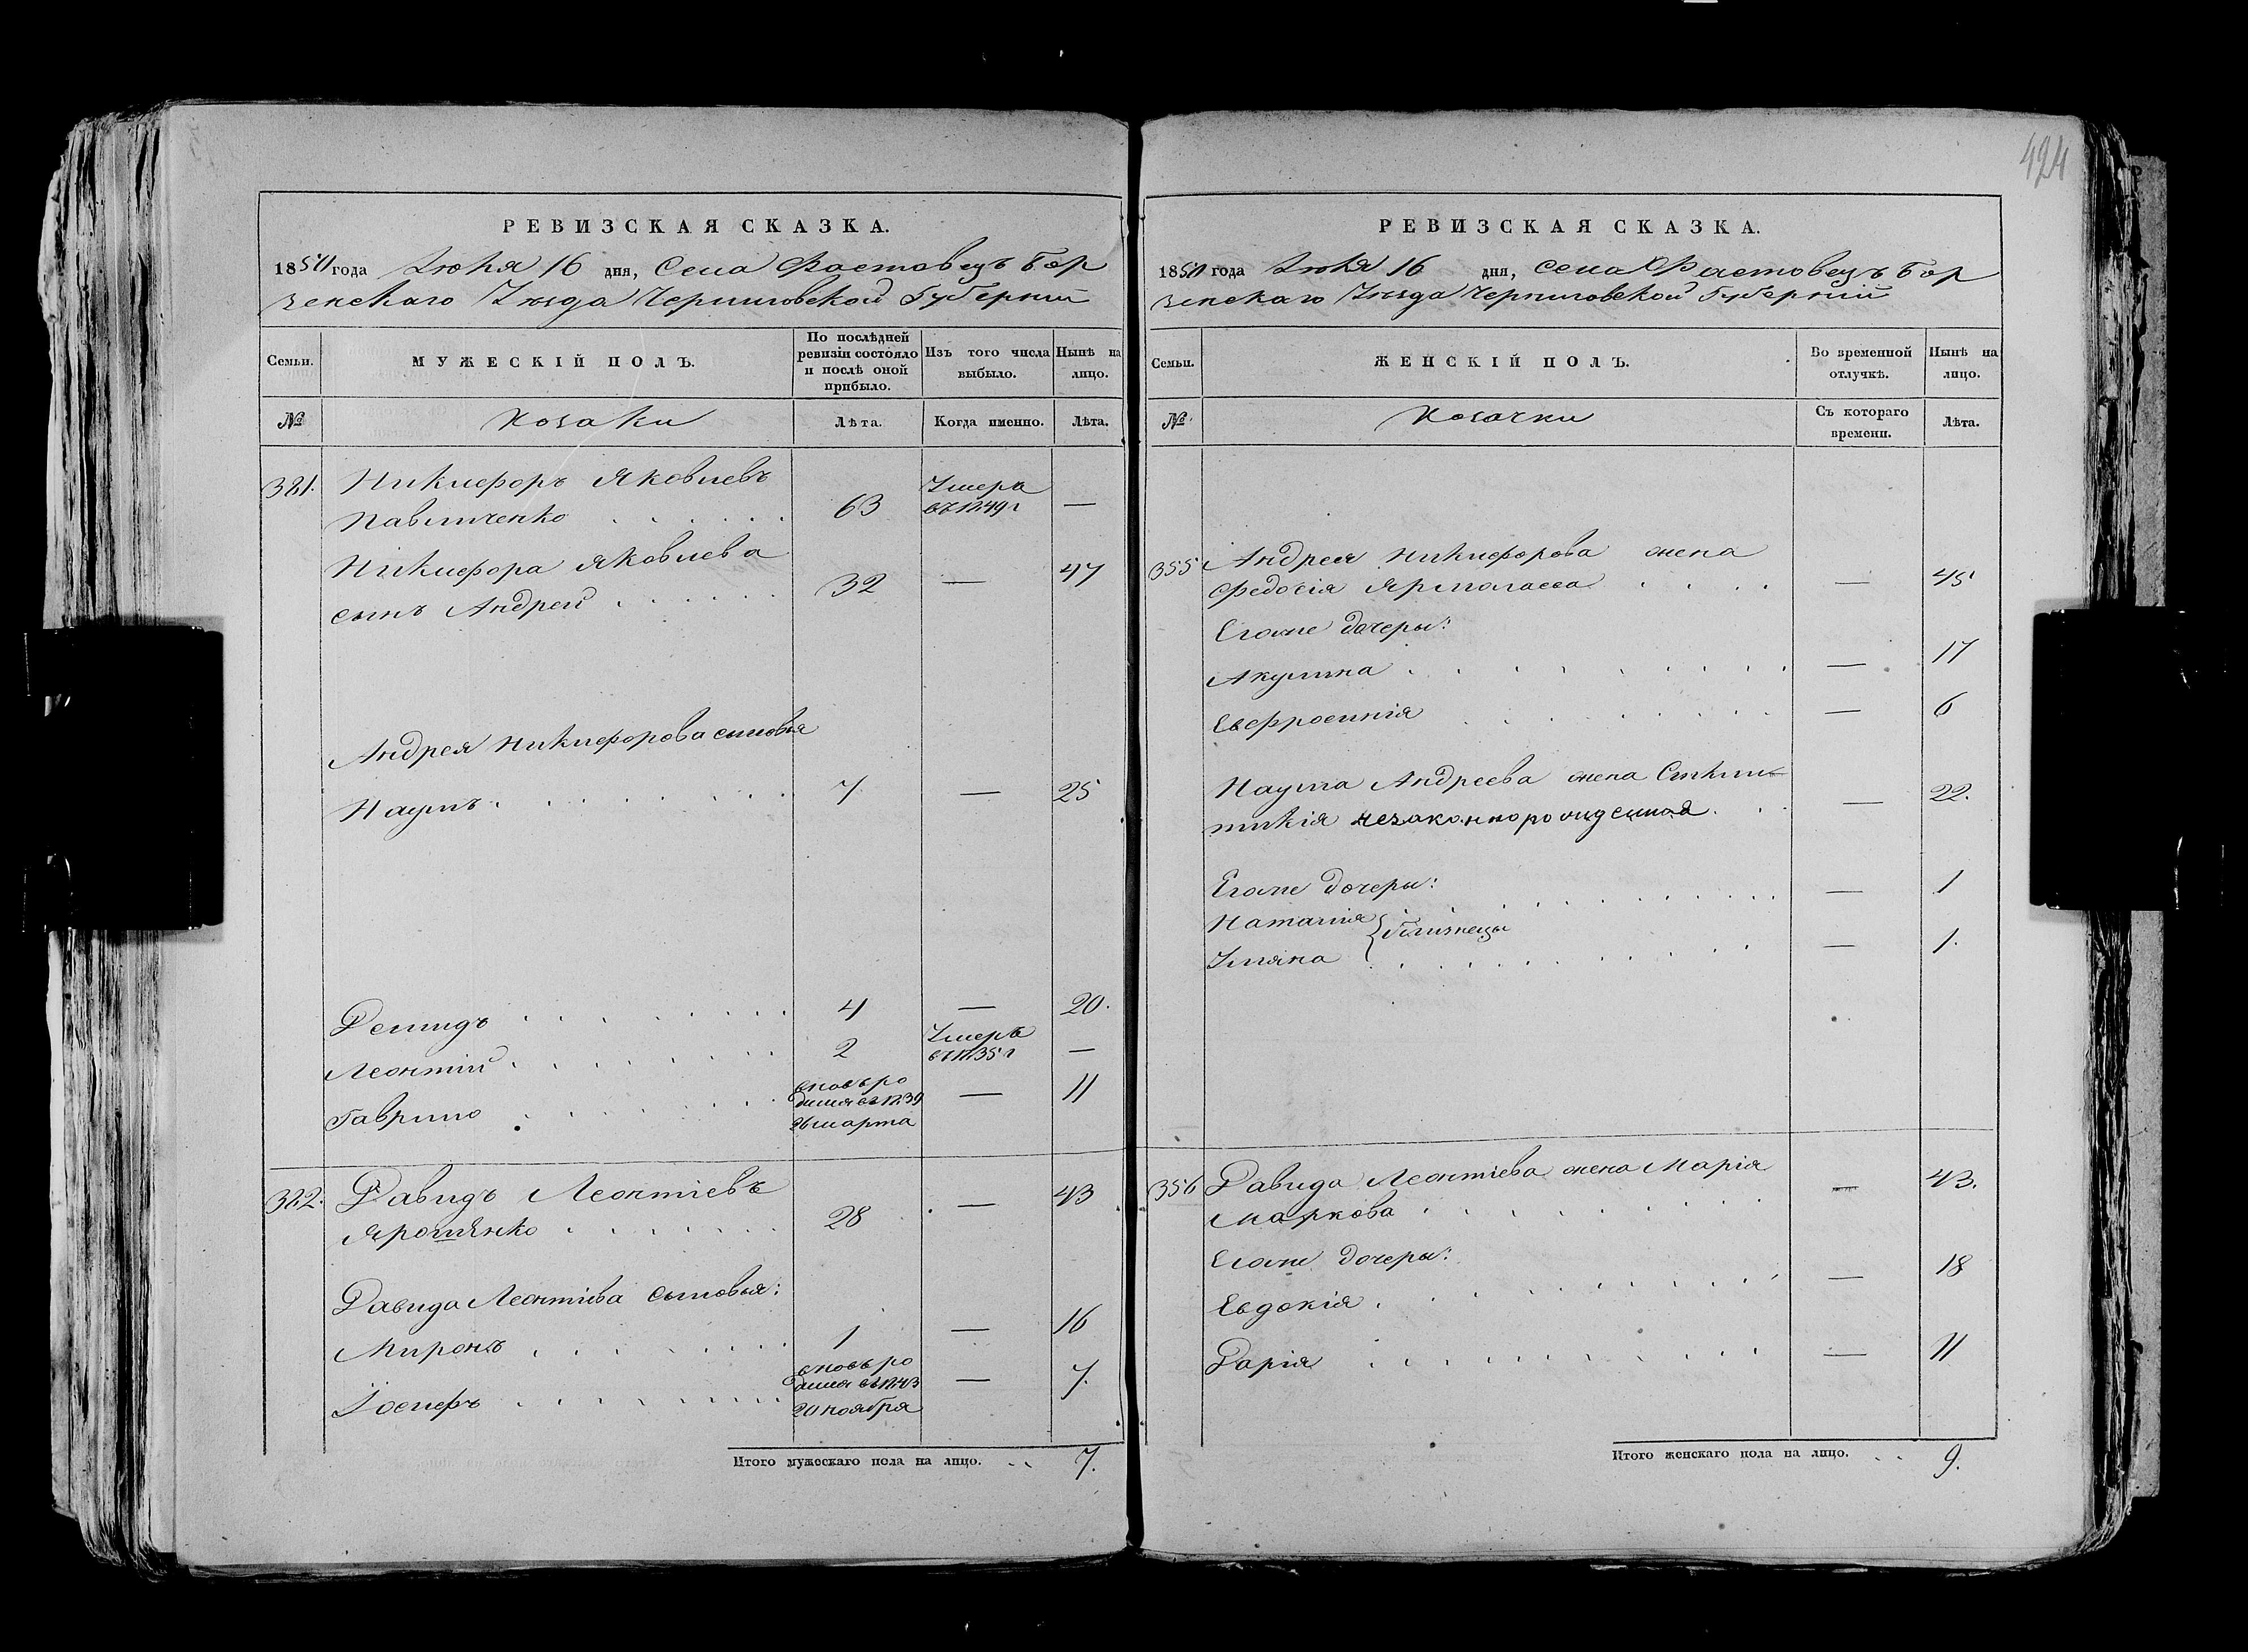 424
РЕВИЗСКАЯ СКАЗКА.
1850 года Іюня 16 дня, Села Фастовецъ Бор
зенскаго Уѣзда Черниговской Губерніи
Семьи.
МУЖЕСКІЙ ПОЛЪ.
По послѣдней
ревизіи состояло
и послѣ оной
прибыло.
Изъ того числа
выбыло.
Нынѣ на
лицо.
№
Козаки
Лѣта.
Когда именно.
Лѣта.
381. Никифоръ Яковлевъ
Павличенко 63 Умеръ
въ 1849 г —
Никифора Яковлева
сынъ Андрей 32 — 47
Андрея Никифорова сыновья
Наумъ 7 — 25
Демидъ 4 — 20.
Леонтій 2 Умеръ
въ 1835 г —
Гаврило вновь ро
дился въ 1839
26 марта — 11
382. Давидъ Леонтіевъ
Ярошенко 28 — 43
Давида Леонтіева сыновья:
Миронъ 1 — 16
Іосифъ вновь ро
дился въ 1843
20 ноября — 7.
Итого мужескаго пола на лицо. 7.
РЕВИЗСКАЯ СКАЗКА.
1850 года Іюня 16 дня, Села Фастовецъ Бор
зенскаго Уѣзда Черниговской Губерніи
Семьи.
ЖЕНСКІЙ ПОЛЪ.
Во временной
отлучкѣ.
Нынѣ на
лицо.
№
Козачки
Съ котораго
времени.
Лѣта.
355 Андрея Никифорова жена
Федосія Ярмолаева — 45
Егоже дочеры:
Акулина — 17
Евфросинія — 6
Наума Андреева жена
незаконнорожденная — 22.
Егоже дочеры:
Наталія — 1
близнецы
Уляна — 1.
356 Давида Леонтіева жена Марія
Маркова — 43.
Егоже дочеры:
Евдокія — 18
Дарія — 11
Итого женскаго пола на лицо. 9.